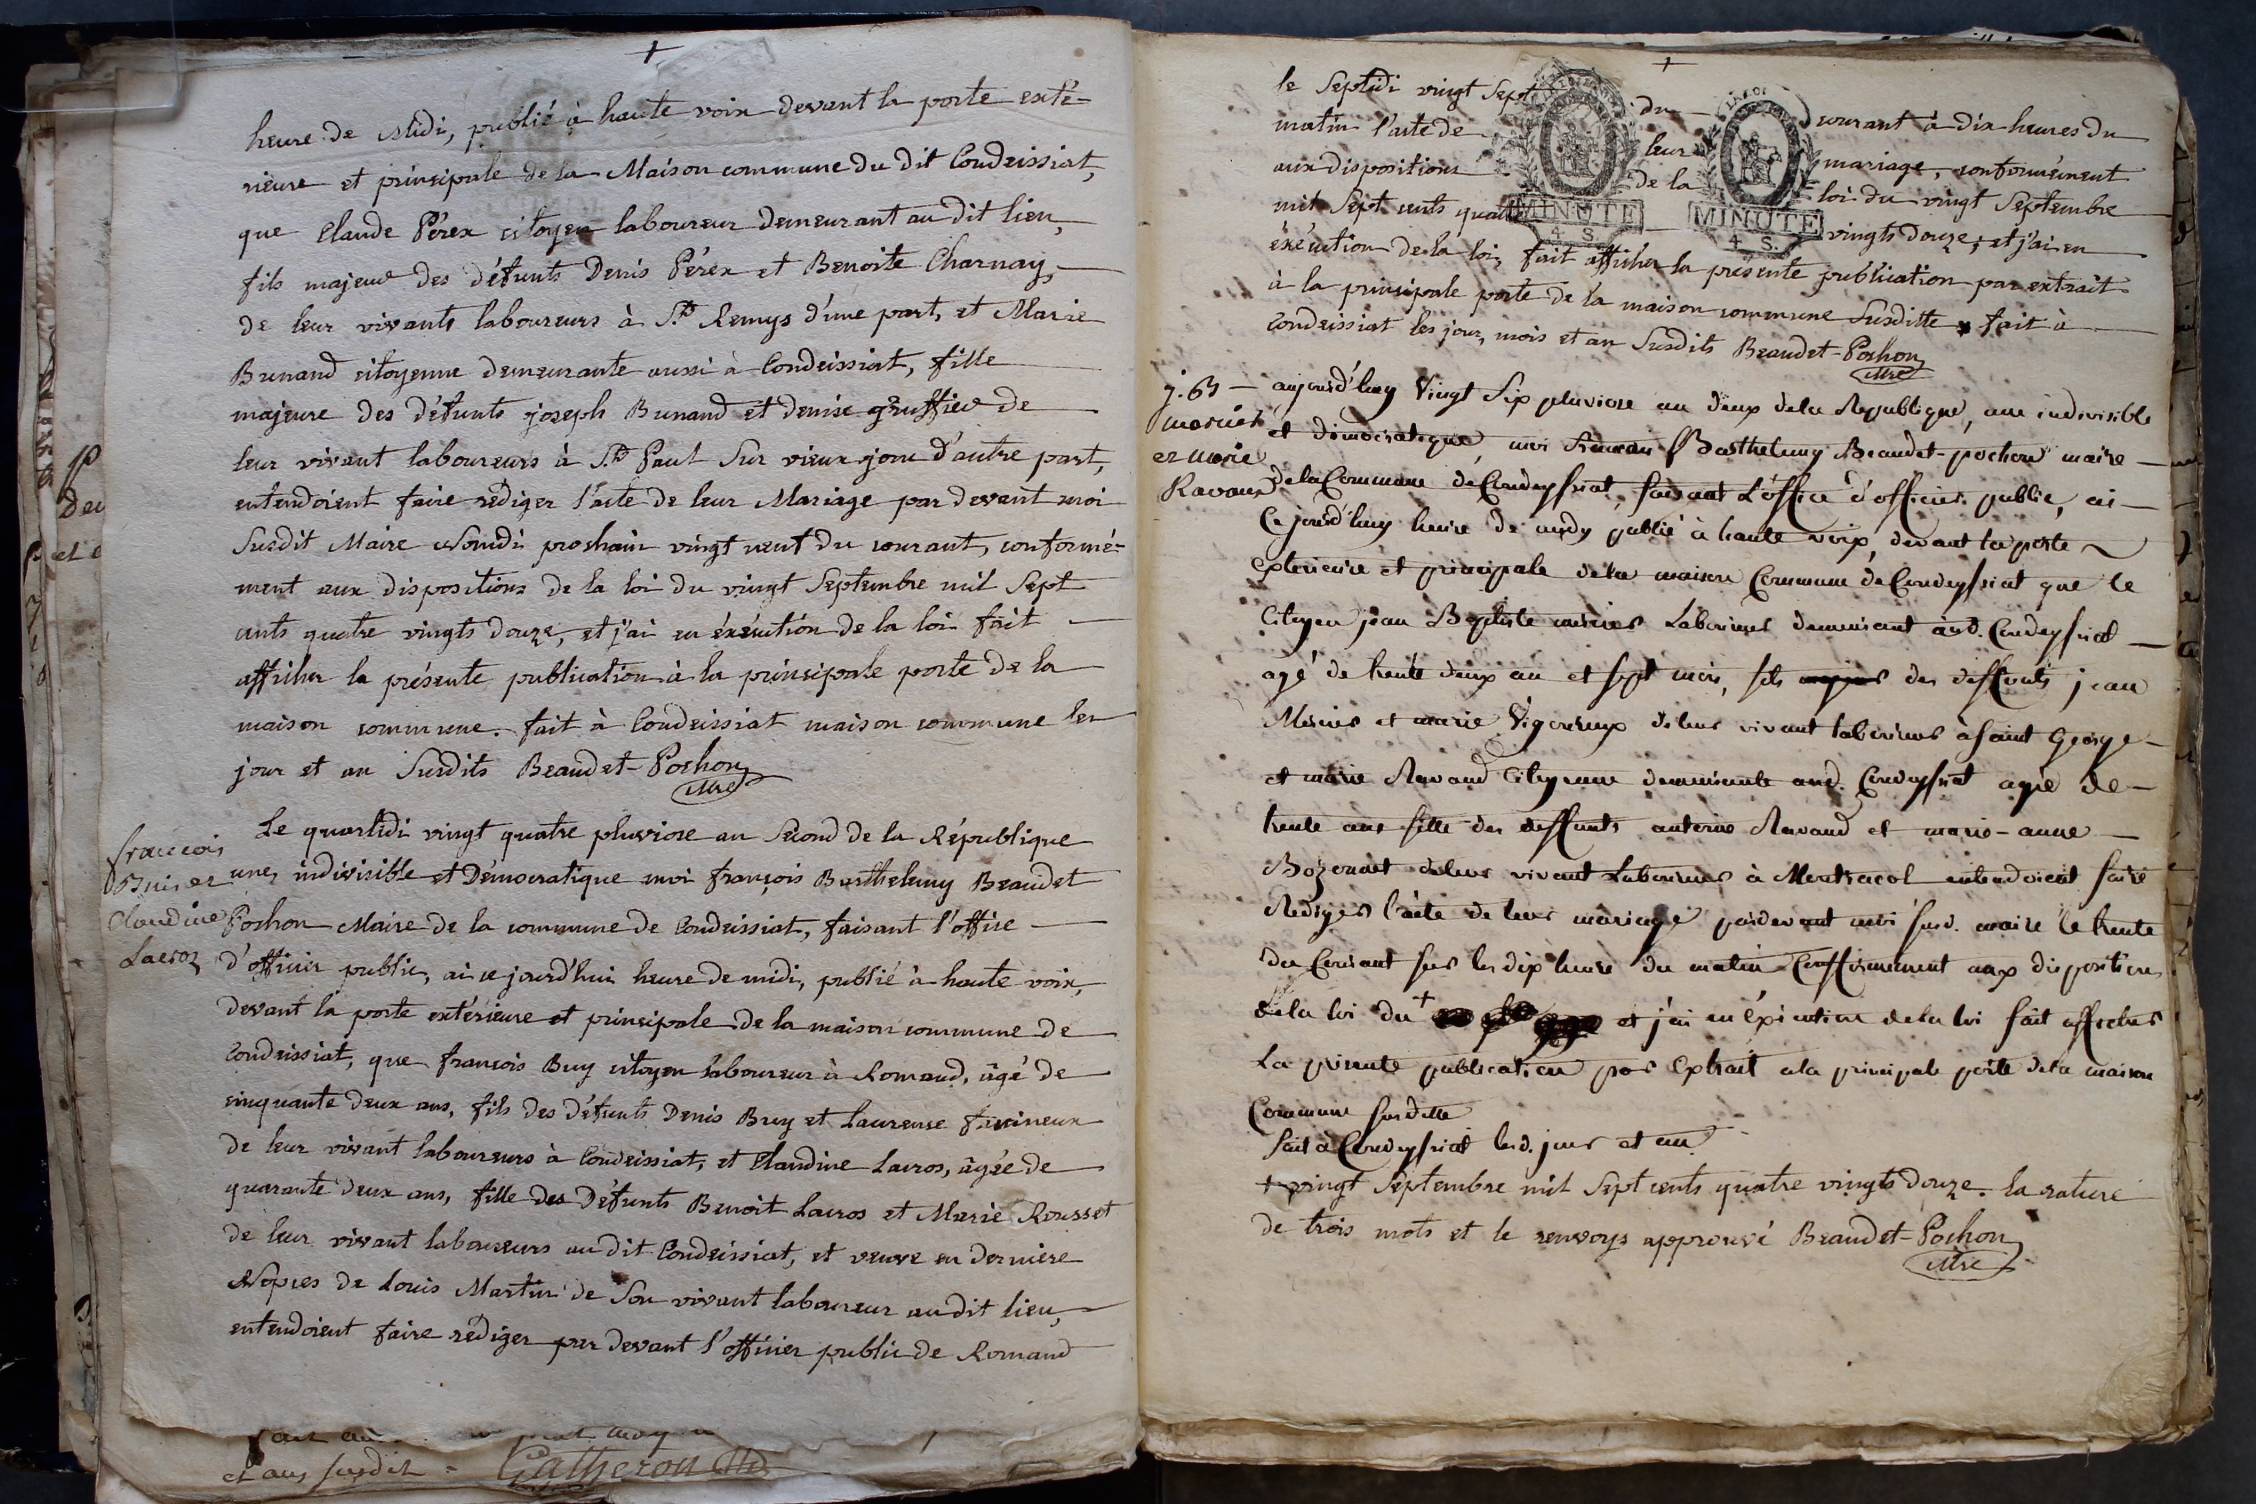 heure de Midi, publié à haute voix devant la porte exté-
rieure et principale de la Maison commune du dit Condeissiat,
que Claude Pérex citoyen laboureur demeurant au dit lieu,
fils majeur des défunts Denis Pérex et Benoite Charnay,
de leur vivants laboureurs à St. Remys d'une part, et Marie
Bunand citoyenne demeurante aussi à Condeissiat, fille
majeure des défunts joseph Bunand et denise gruffieu de
leur vivant laboureurs à St. Paul Sur vieux jonc d'autre part,
entendoient faire rédiger l'acte de leur Mariage par devant moi
Susdit Maire Nonidi prochain vingt neuf du courant, conformé-
ment aux dispositions de la loi du vingt Septembre mil Sept
cents quatre vingts douze, et j'ai en éxécution de la loi fait
afficher la présente publication à la principale porte de la
maison commune. fait à Condeissiat maison commune les
jour et an Susdits Beaudet-Pochon
Mre
françois
Buis et
Claudine
Lacroz
Le quartidi vingt quatre pluviose an Second de la République
une, indivisible et Démocratique moi françois Barthelemy Beaudet
Pochon Maire de la commune de Condeissiat, faisant l'office
d'officier public, ai ce jourd'hui heure de midi, publié à haute voix,
devant la porte extérieure et principale de la maison commune de
Condeissiat, que françois Buy citoyen laboureur à Romand, âgé de
cinquante deux ans, fils des défunts Denis Buy et Laurense
de leur vivant laboureurs à Condeissiat, et Claudine Lacros, âgée de
quarante deux ans, fille des Défunts Benoit Lacros et Marie Rousset
de leur vivant laboureurs au dit Condeissiat, et veuve en derniere
Nopces de Louis Martin de Son vivant laboureur au dit lieu,
entendoient faire rédiger par devant l'officier public de Romand
et ans susdit
Catheron
le Septidi vingt Sept du courant à dix heures du
matin l'acte de leur mariage, conformément
aux dispositions de la loi du vingt Septembre
mil Sept cents quatre vingts douze, et j'ai en
éxécution de la loi, fait afficher la présente publication par extrait
à la principale porte de la maison commune Susditte fait à
Condeissiat les jour, mois et an Susdits Beaudet-Pochon
Mre
MINUTE
4 S.
MINUTE
4 S.
et marie
Ravaud
aujourd'huy Vingt Six pluviose an deux dela Republique, une indivisible
et démocratique, moi francois Barthelemy Beaudet-pochon maire
dela Commune de Condeyssiat, faisant L'office d'officier public, ai
Ce jourd'huy heure de midy publié à haute voix, devant la porte
exterieure et principale dela maison Commune de Condeyssiat que le
Citoyen jean Baptiste mercier Laboureur demeurant aud. Condeyssiat
agé de trente deux an et sept mois, fils majeur des deffunts jean
Mercier et marie Vigoureux deleur vivant laboureurs à saint George
et marie Ravaud Citoyenne demeurante aud. Condeyssiat agée de
trente ans fille des deffunts antoine Ravaud et marie-anne
Bozonnet deleur vivant Laboureurs à Montracol entendoient faire
Rediger l'acte de leur mariage pardevant moi susd. maire le trente
du Courant sur les dix heure du matin Confformement aux disposition
dela loi du + et j'ai en éxécution dela loi fait afficher
La presente publication par Extrait ala principale porte dela maison
Commune susditte
fait à Condeyssiat lesd. jour et an
+ vingt Septembre mil Sept cents quatre vingts douze. la rature
de trois mots et le renvoys approuvé Beaudet-Pochon
Mre